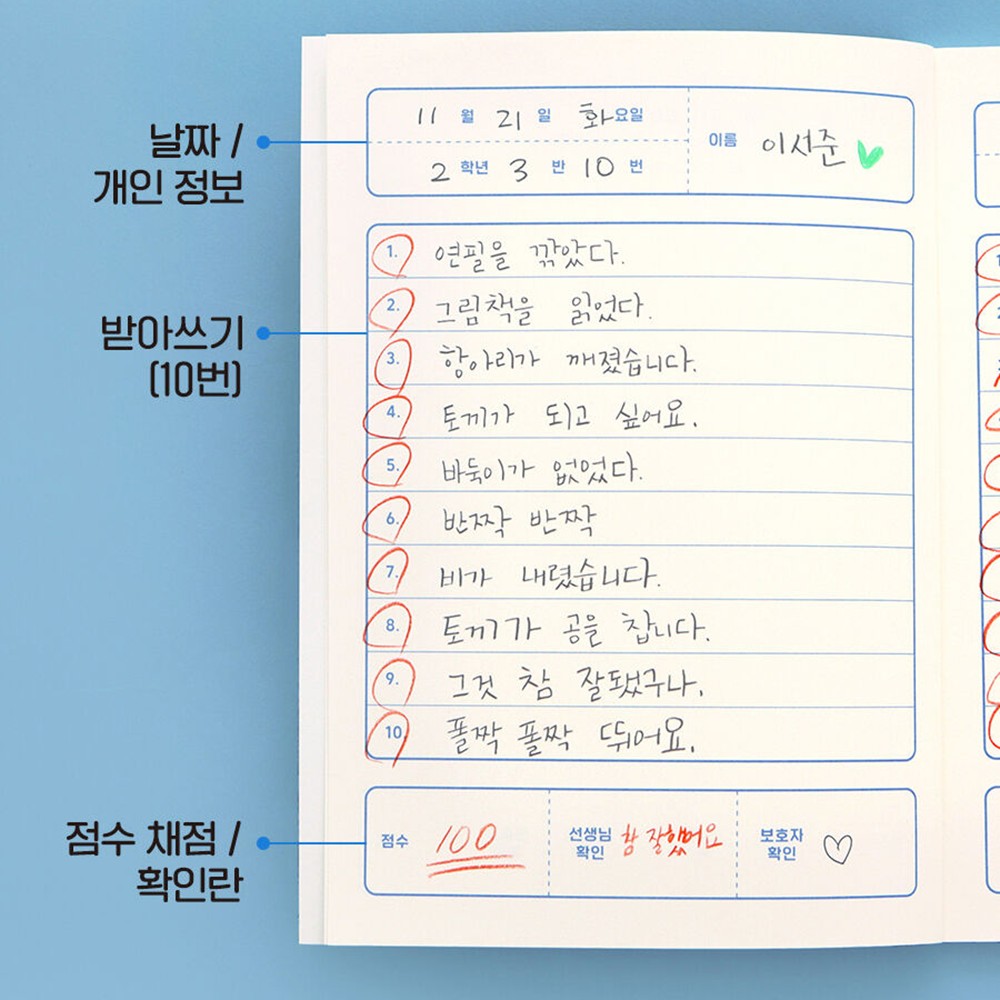 날짜 /
개인 정보
11 월 21 일 화요일
2 학년 3 반 10 번
이름 이서준
받아쓰기
(10번)
1. 연필을 깎았다.
2. 그림책을 읽었다.
3. 항아리가 깨졌습니다.
4. 토끼가 되고 싶어요.
5. 바둑이가 없었다.
6. 반짝 반짝
7. 비가 내렸습니다.
8. 토끼가 공을 찹니다.
9. 그것 참 잘됐구나.
10. 폴짝 폴짝 뛰어요.
점수 채점 /
확인란
점수 100
선생님 확인 참 잘했어요
보호자 확인